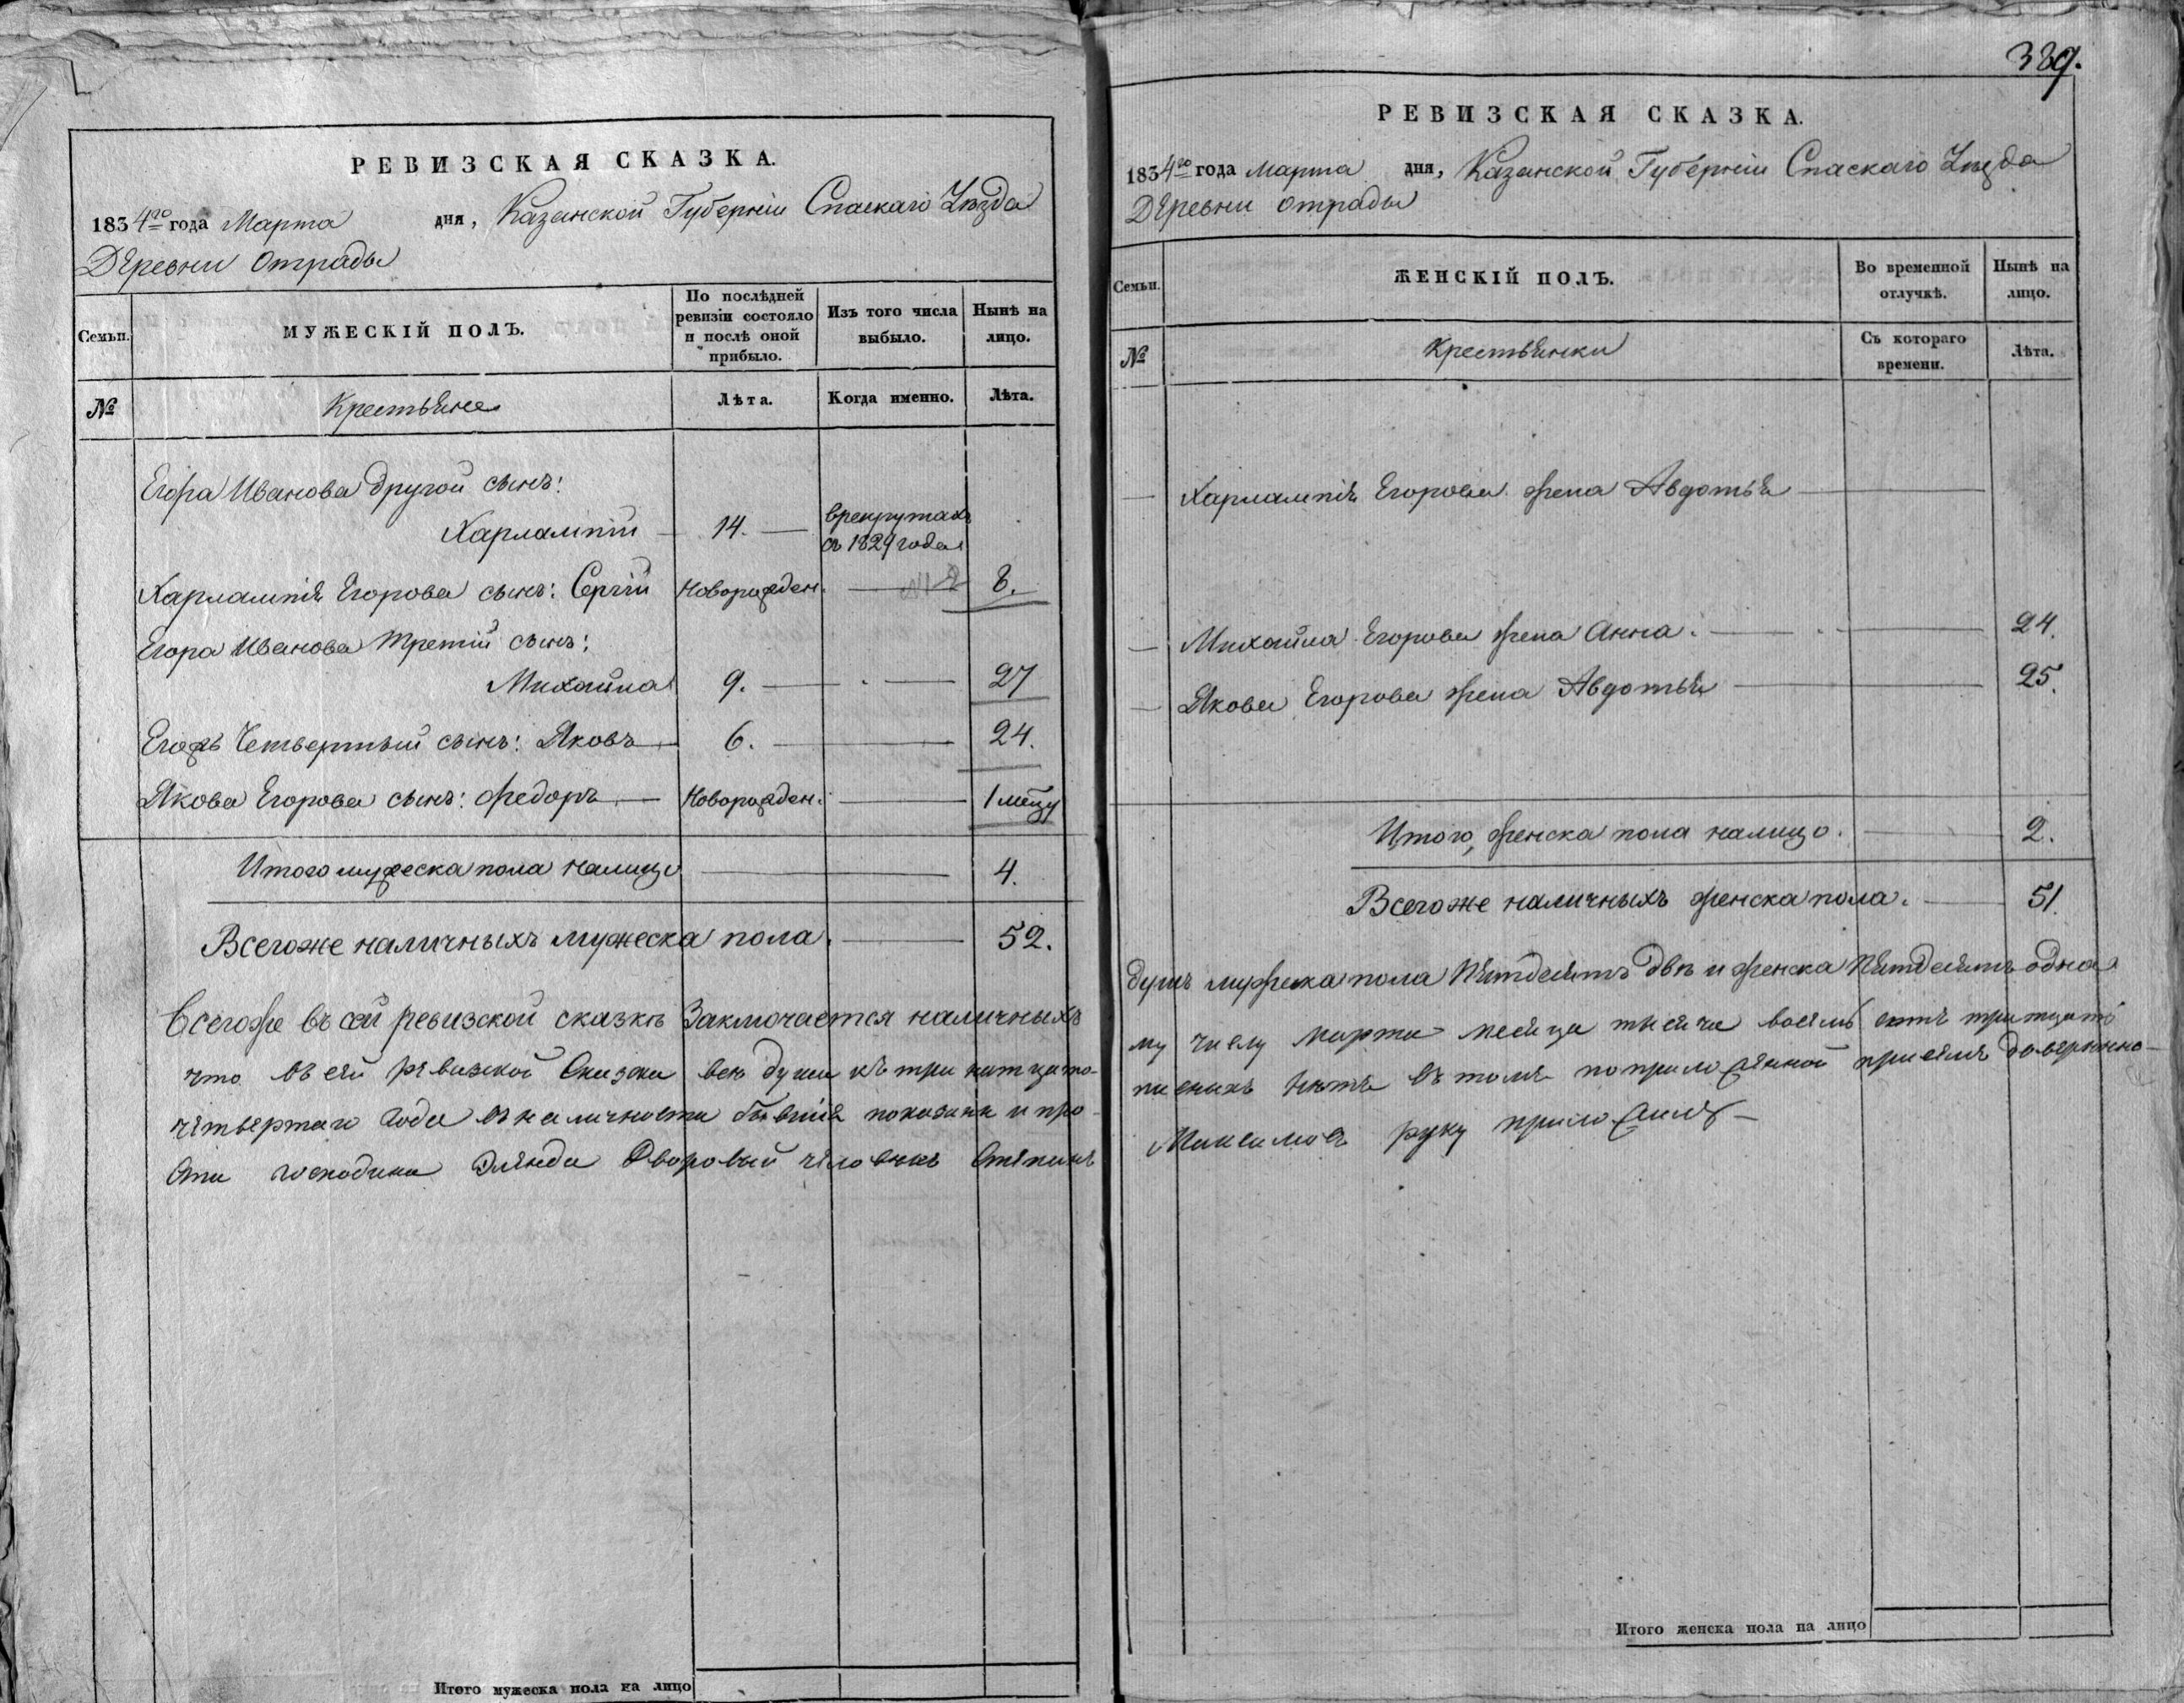 РЕВИЗСКАЯ СКАЗКА.
1834го года Марта дня, Казанской Губерніи Спаскаго Уѣзда
Деревни Отрады
Семьи. МУЖЕСКІЙ ПОЛЪ. По послѣдней ревизіи состояло и послѣ оной прибыло. Изъ того числа выбыло. Нынѣ на лицо.
№ Крестьяне Лѣта. Когда именно. Лѣта.
Егора Иванова другой сынъ:
Харлампій 14. врекрутахъ съ 1829 года
Харлампія Егорова сынъ: Сергій Новорожден. 8.
Егора Иванова третій сынъ:
Михайла 9. 27
Егоръ Четвертый сынъ: Яковъ 6. 24.
Якова Егорова сынъ: Федоръ Новорожден. 1 мецу
Итого мужеска пола налицо 4.
Всегоже наличныхъ мужеска пола. 52.
Всегоже въ сей ревизской сказкѣ Заключается наличныхъ
что въ сей ревизской Сказки всѣ души къ три натцато-
четвертаго года въ наличности бывшия показаны и про-
сти господина Дворовый человѣкъ Степанъ
Итого мужеска пола на лицо
389.
РЕВИЗСКАЯ СКАЗКА.
1834го года Марта дня, Казанской Губерніи Спаскаго Уѣзда
Деревни Отрады
Семьи. ЖЕНСКІЙ ПОЛЪ. Во временной отлучкѣ. Нынѣ на лицо.
№ Крестьянки Съ котораго времени. Лѣта.
Харлампія Егорова жена Авдотья
Михайла Егорова жена Анна. 24.
Якова Егорова жена Авдотья 25.
Итого, женска пола налицо. 2.
Всегоже наличныхъ женска пола. 51.
душъ мужеска пола Пятдесятъ двѣ и женска Пятдесятъ одна
му числу марта месяца тысяча восемь сотъ тритцать
писныхъ нетъ въ томъ поприложенной присемъ доверенно-
Максимовъ руку приложилъ
Итого женска пола на лицо